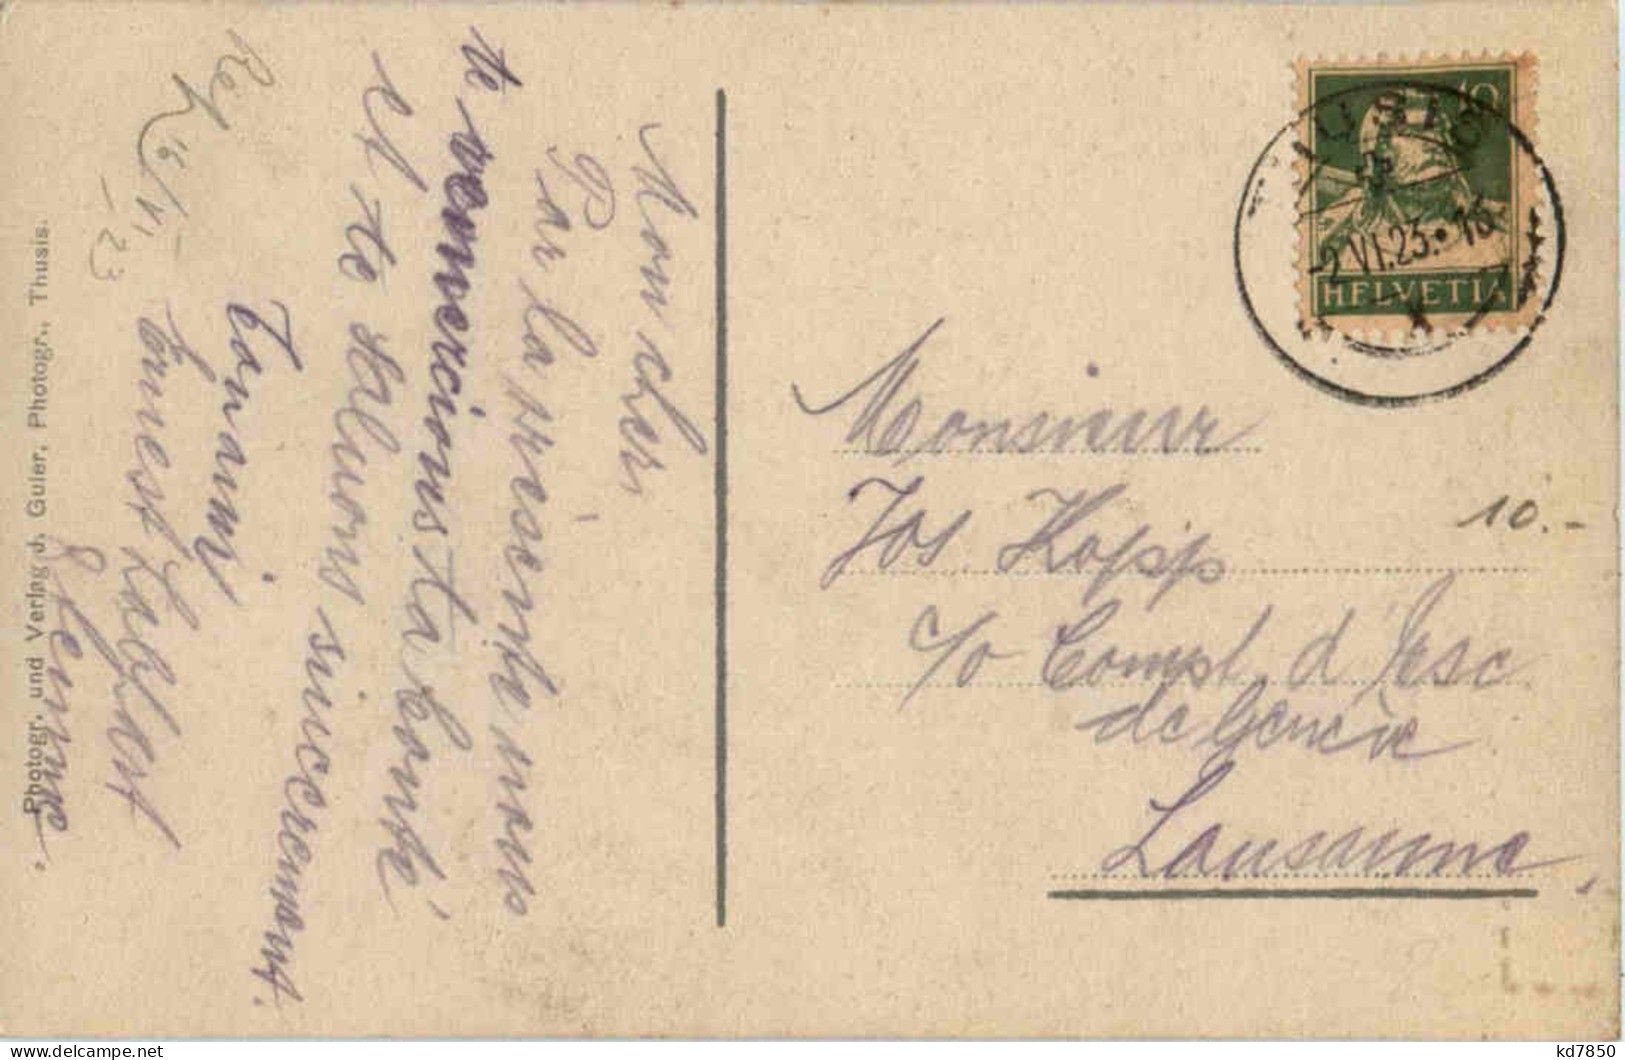 Mon cher,
Par la présente nous
te remercions ta bonté
et te saluons sincerement.
Ernest
15/VI
23
Photogr. und Verlag J. Guler, Photogr., Thusis.
10
2.VI.23.
HELVETIA
Monsieur
Jos. Kopp
c/o Compt. d'Esc
de Genève
Lausanne
10.-
delcampe.net
kd7850